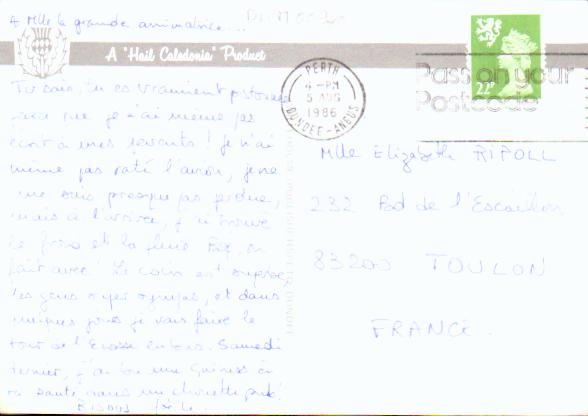 A Mlle la grande animatrice...
A "Hail Caledonia" Product
Tu sais, tu es vraiment
que je n'ai même pas
écrit à mes ! Je n'ai
même pas raté l'avion, je ne
me suis presque pas perdue,
mais à l'arrivée, j'ai trouvé
le froid et la pluie Bof, on
fait avec! Le coin est superbe
les gens super sympas, et dans
quelques jours je vais faire le
tour de l'Ecosse en bus. Samedi
dernier, j'ai bu une Guiness à
ta santé dans un chouette pub!
Bisous
PERTH
4 - PM
5 AUG
1986
DUNDEE - ANGUS
Pass on your
Postcode
22P
Mlle Elizabeth RIPOLL
232 Bd de l'Escaillon
83200 TOULON
FRANCE.